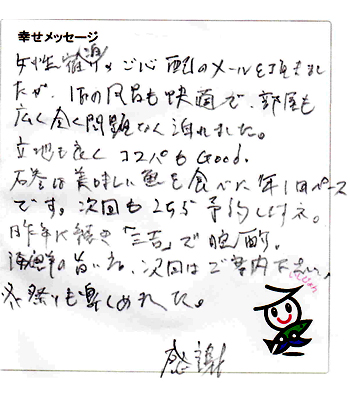 幸せメッセージ
女性宿泊 ご心配のメールを頂きまし
たが、1Fの風呂も快適で、部屋も
広く全く問題なく泊れました。
立地も良くコスパもGood.
石巻は美味しい魚を食べに年1回ペース
です。次回もこちら予約しますネ。
昨年に続き「三吉」で晩酌。
海鮮の旨い 、次回はご案内下さい。
冬祭りも楽しめました。
感謝